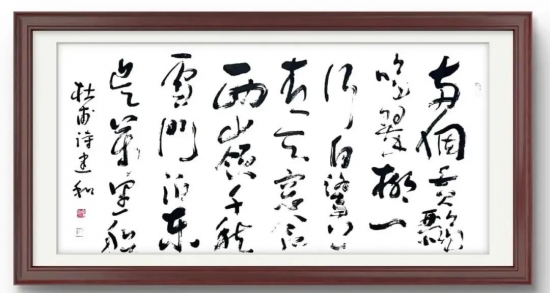 两個黄鸝
鳴翠柳一
行白鷺上
青天窓含
西嶺千秋
雪門泊東
吴萬里船
杜甫诗建和